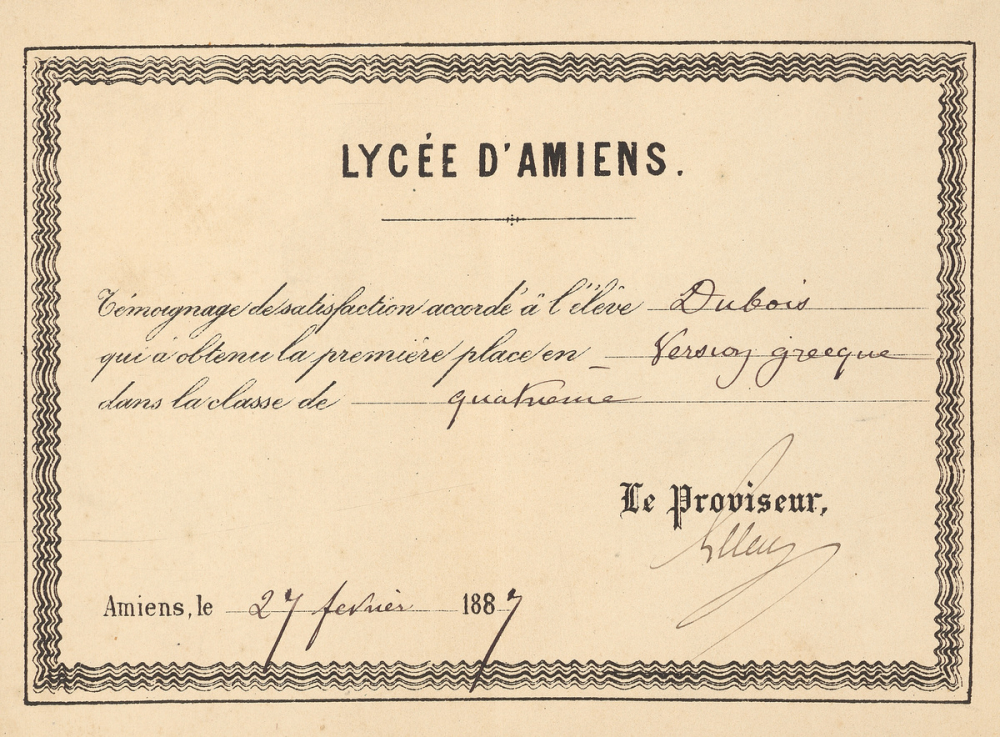 LYCÉE D'AMIENS.
Témoignage de satisfaction accordé à l'élève Dubois
qui a obtenu la première place en Version grecque
dans la classe de quatrième
Le Proviseur,
Amiens, le 27 février 1887